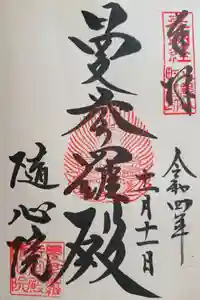 奉拝
令和四年
十二月十一日
曼荼羅殿
随心院